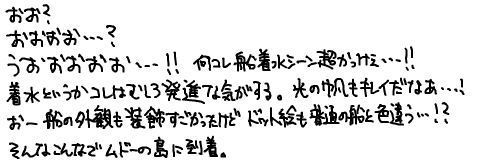 おお?
おおおお…?
うおおおおお…!! 何コレ船着水シーン超かっけえ…!!
着水というかコレはむしろ発進な気がする。光の帆もキレイだなあ…!
おー船の外観も装飾すごかったけどドット絵も普通の船と色違う…!?
そんなこんなでムドーの島に到着。